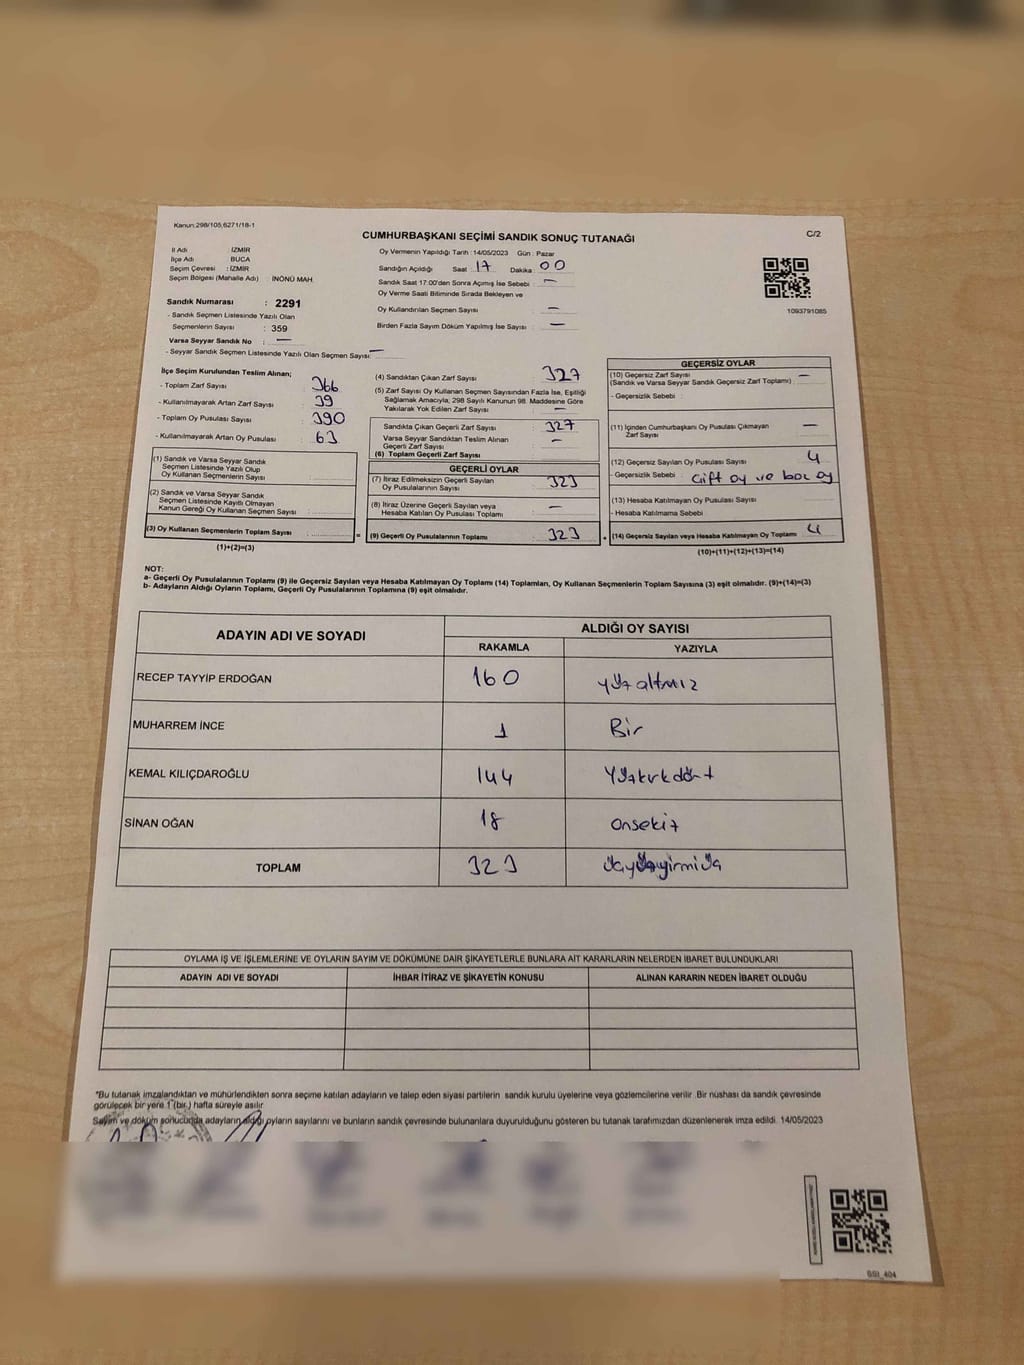 Kanun:298/105;6271/18-1
CUMHURBAŞKANI SEÇİMİ SANDIK SONUÇ TUTANAĞI
C/2
İl Adı : İZMİR
İlçe Adı : BUCA
Seçim Çevresi : İZMİR
Seçim Bölgesi (Mahalle Adı) İNÖNÜ MAH.
Oy Vermenin Yapıldığı Tarih :14/05/2023 Gün : Pazar
Sandığın Açıldığı Saat : 17 Dakika : 00
Sandık Saat 17:00'den Sonra Açılmış İse Sebebi : —
Oy Verme Saati Bitiminde Sırada Bekleyen ve
Oy Kullandırılan Seçmen Sayısı : —
Birden Fazla Sayım Döküm Yapılmış İse Sayısı : —
1093791085
Sandık Numarası : 2291
- Sandık Seçmen Listesinde Yazılı Olan
Seçmenlerin Sayısı : 359
Varsa Seyyar Sandık No : —
- Seyyar Sandık Seçmen Listesinde Yazılı Olan Seçmen Sayısı: —
İlçe Seçim Kurulundan Teslim Alınan;
- Toplam Zarf Sayısı : 366
- Kullanılmayarak Artan Zarf Sayısı : 39
- Toplam Oy Pusulası Sayısı : 390
- Kullanılmayarak Artan Oy Pusulası : 63
(1) Sandık ve Varsa Seyyar Sandık
Seçmen Listesinde Yazılı Olup
Oy Kullanan Seçmenlerin Sayısı :
(2) Sandık ve Varsa Seyyar Sandık
Seçmen Listesinde Kayıtlı Olmayan
Kanun Gereği Oy Kullanan Seçmen Sayısı :
(3) Oy Kullanan Seçmenlerin Toplam Sayısı :
(1)+(2)=(3)
(4) Sandıktan Çıkan Zarf Sayısı : 327
(5) Zarf Sayısı Oy Kullanan Seçmen Sayısından Fazla İse, Eşitliği
Sağlamak Amacıyla; 298 Sayılı Kanunun 98. Maddesine Göre
Yakılarak Yok Edilen Zarf Sayısı : —
Sandıkta Çıkan Geçerli Zarf Sayısı : 327
Varsa Seyyar Sandıktan Teslim Alınan
Geçerli Zarf Sayısı : —
(6) Toplam Geçerli Zarf Sayısı
GEÇERLİ OYLAR
(7) İtiraz Edilmeksizin Geçerli Sayılan
Oy Pusulalarının Sayısı : 323
(8) İtiraz Üzerine Geçerli Sayılan veya
Hesaba Katılan Oy Pusulası Toplamı : —
= (9) Geçerli Oy Pusulalarının Toplamı : 323
GEÇERSİZ OYLAR
(10) Geçersiz Zarf Sayısı : —
(Sandık ve Varsa Seyyar Sandık Geçersiz Zarf Toplamı)
- Geçersizlik Sebebi :
(11) İçinden Cumhurbaşkanı Oy Pusulası Çıkmayan
Zarf Sayısı : —
(12) Geçersiz Sayılan Oy Pusulası Sayısı : 4
- Geçersizlik Sebebi : Çift oy ve boş oy
(13) Hesaba Katılmayan Oy Pusulası Sayısı :
- Hesaba Katılmama Sebebi :
+ (14) Geçersiz Sayılan veya Hesaba Katılmayan Oy Toplamı : 4
(10)+(11)+(12)+(13)=(14)
NOT:
a- Geçerli Oy Pusulalarının Toplamı (9) ile Geçersiz Sayılan veya Hesaba Katılmayan Oy Toplamı (14) Toplamları, Oy Kullanan Seçmenlerin Toplam Sayısına (3) eşit olmalıdır. (9)+(14)=(3)
b- Adayların Aldığı Oyların Toplamı, Geçerli Oy Pusulalarının Toplamına (9) eşit olmalıdır.
ADAYIN ADI VE SOYADI ALDIĞI OY SAYISI
RAKAMLA YAZIYLA
RECEP TAYYİP ERDOĞAN 160 yüzaltmız
MUHARREM İNCE 1 Bir
KEMAL KILIÇDAROĞLU 144 Yüzkırkdört
SİNAN OĞAN 18 onsekiz
TOPLAM 323 üçyüzyirmiüç
OYLAMA İŞ VE İŞLEMLERİNE VE OYLARIN SAYIM VE DÖKÜMÜNE DAİR ŞİKAYETLERLE BUNLARA AİT KARARLARIN NELERDEN İBARET BULUNDUKLARI
ADAYIN ADI VE SOYADI İHBAR İTİRAZ VE ŞİKAYETİN KONUSU ALINAN KARARIN NEDEN İBARET OLDUĞU
*Bu tutanak imzalandıktan ve mühürlendikten sonra seçime katılan adayların ve talep eden siyasi partilerin sandık kurulu üyelerine veya gözlemcilerine verilir. Bir nüshası da sandık çevresinde
görülecek bir yere 1 (bir) hafta süreyle asılır.
Sayım ve döküm sonucunda adayların aldığı oyların sayılarını ve bunların sandık çevresinde bulunanlara duyurulduğunu gösteren bu tutanak tarafımızdan düzenlenerek imza edildi. 14/05/2023
GSI_404